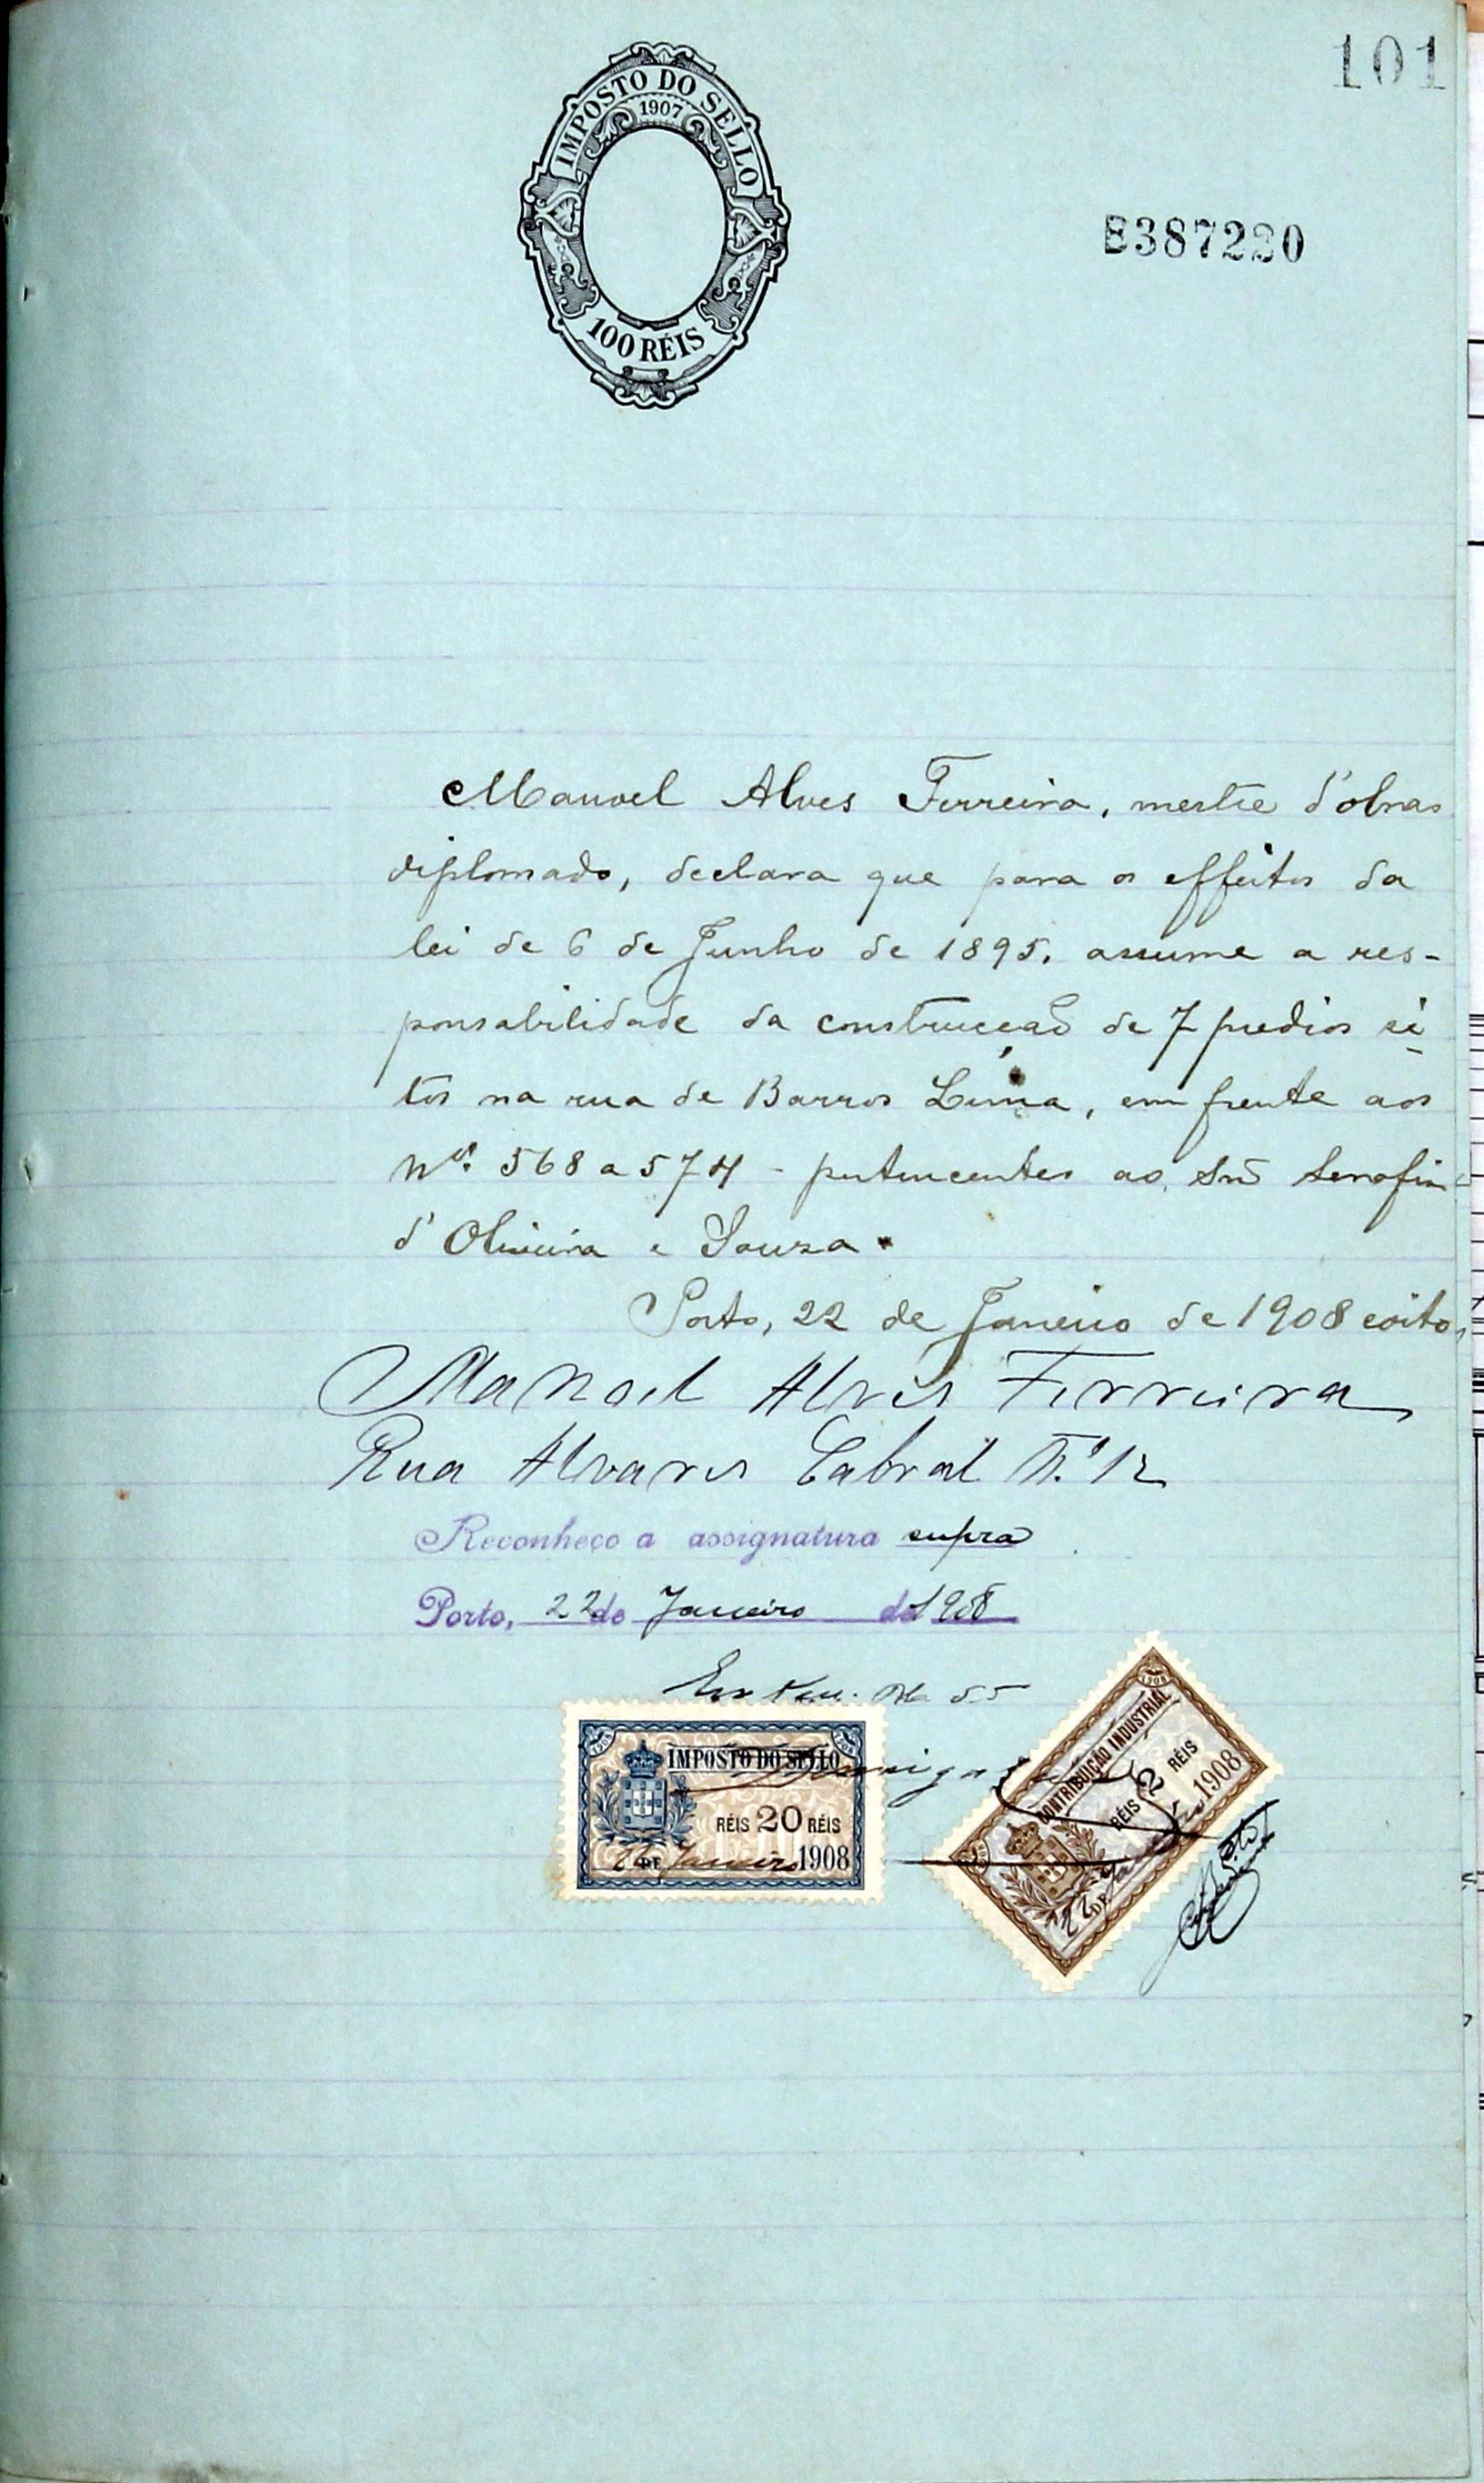 101
IMPOSTO DO SELLO
1907
100 RÉIS
E387220
Manoel Alves Ferreira, mestre d'obras
diplomado, declara que para os effeitos da
lei de 6 de Junho de 1895, assume a res-
ponsabilidade da construcção de 7 predios si
tos na rua de Barros Lima, em frente aos
Nos. 568 a 574 - pertencentes ao Snr Serafim
d'Oliveira e Souza.
Porto, 22 de Janeiro de 1908 e oito,
Manoel Alves Ferreira
Rua Alvares Cabral N.º 12
Reconheço a assignatura supra
Porto, 22 de Janeiro de 1908
1908 IMPOSTO DO SELLO 1908
RÉIS 20 RÉIS
22 DE Janeiro 1908
1908
CONTRIBUIÇÃO INDUSTRIAL
RÉIS 2 RÉIS
22 DE Janeiro 1908